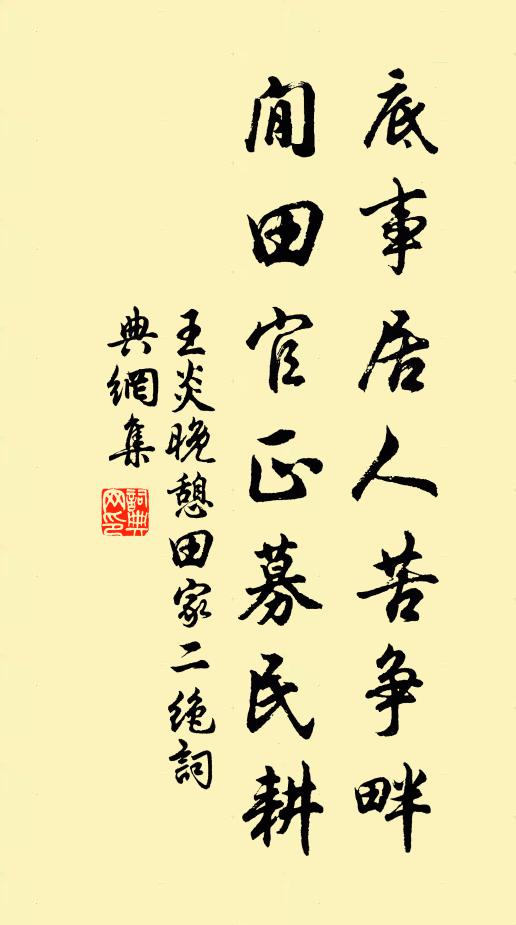 底事居人苦争畔
闲田官正募民耕
王炎晚憩田家二绝詞
典網集
詞典
网印